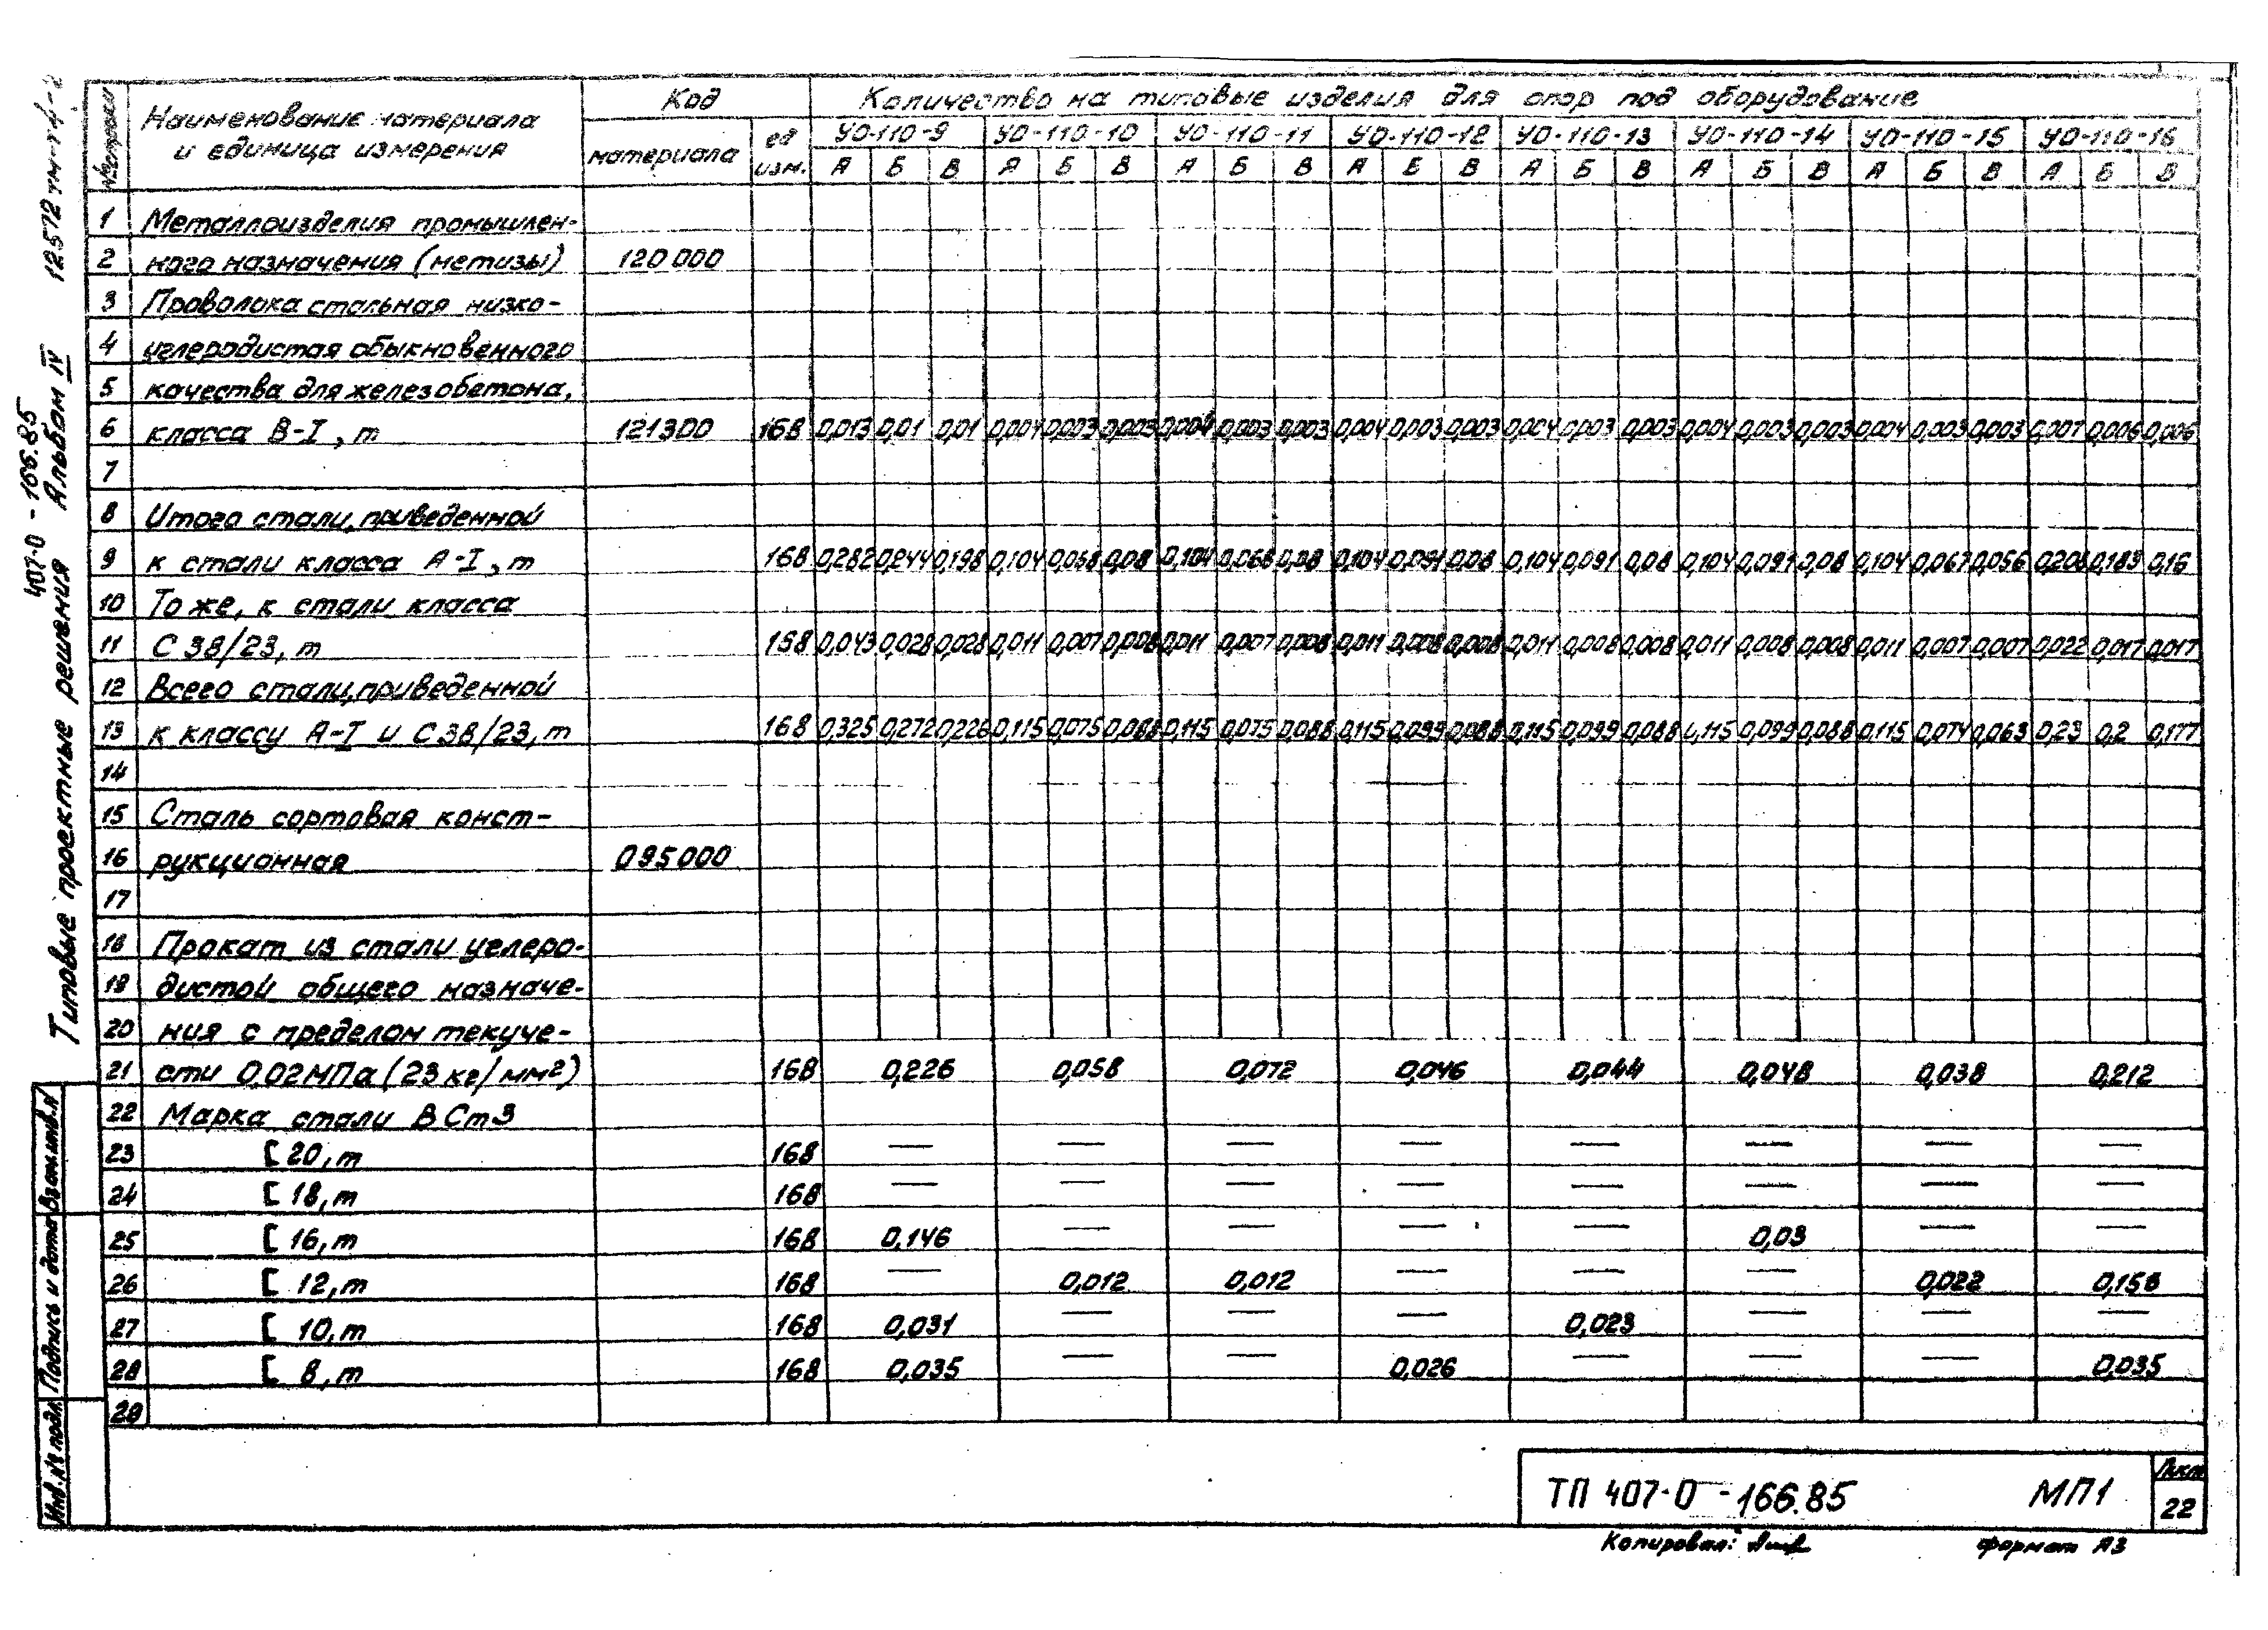 12572тм-т4-2
407-0-166.85
Типовые проектные решения Альбом IV
№ строки Наименование материала и единица измерения Код Количество на типовые изделия для опор под оборудование
материала ед изм. УО-110-9 УО-110-10 УО-110-11 УО-110-12 УО-110-13 УО-110-14 УО-110-15 УО-110-16
А Б В А Б В А Б В А Б В А Б В А Б В А Б В А Б В
1 Металлоизделия промышлен-
2 ного назначения (метизы) 120 000
3 Проволока стальная низко-
4 углеродистая обыкновенного
5 качества для железобетона,
6 класса В-I, т 121300 168 0,013 0,01 0,01 0,004 0,003 0,003 0,004 0,003 0,003 0,004 0,003 0,003 0,004 0,003 0,003 0,004 0,003 0,003 0,004 0,003 0,003 0,007 0,006 0,006
7
8 Итого стали, приведенной
9 к стали класса А-I, т 168 0,282 0,244 0,198 0,104 0,068 0,08 0,104 0,068 0,08 0,104 0,091 0,08 0,104 0,091 0,08 0,104 0,091 0,08 0,104 0,067 0,056 0,208 0,183 0,16
10 То же, к стали класса
11 С 38/23, т 168 0,043 0,028 0,028 0,011 0,007 0,008 0,011 0,007 0,008 0,011 0,008 0,008 0,011 0,008 0,008 0,011 0,008 0,008 0,011 0,007 0,007 0,022 0,017 0,017
12 Всего стали, приведенной
13 к классу А-I и С38/23, т 168 0,325 0,272 0,226 0,115 0,075 0,088 0,115 0,075 0,088 0,115 0,099 0,088 0,115 0,099 0,088 0,115 0,099 0,088 0,115 0,074 0,063 0,23 0,2 0,177
14
15 Сталь сортовая конст-
16 рукционная 095000
17
18 Прокат из стали углеро-
19 дистой общего назначе-
20 ния с пределом текуче-
21 сти 0,02МПа (23 кг/мм²) 168 0,226 0,058 0,072 0,046 0,044 0,048 0,038 0,212
22 Марка стали ВСт3
23 [ 20, т 168 — — — — — — — —
24 [ 18, т 168 — — — — — — — —
25 [ 16, т 168 0,146 — — — — 0,03 — —
26 [ 12, т 168 — 0,012 0,012 — — — 0,022 0,158
27 [ 10, т 168 0,031 — — — 0,023 — — —
28 [ 8, т 168 0,035 — — 0,026 — — — 0,035
29
Инв.№ подл. Подпись и дата Взам.инв.№
ТП 407-0-166.85 МП1 Лист
22
Копировал: формат А3